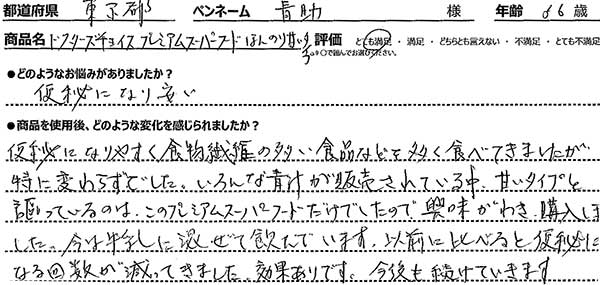 都道府県 東京都 ペンネーム 青助 様 年齢 86 歳
商品名 ドクターズチョイス プレミアムスーパーフード ほんのり甘い 評価 とても満足・満足・どちらとも言えない・不満足・とても不満足
※○で囲んでお選びください。
●どのようなお悩みがありましたか?
便秘になり安い
●商品を使用後、どのような変化を感じられましたか?
便秘になりやすく食物繊維の多い食品などを多く食べてきましたが
特に変わらずでした。いろんな青汁が販売されている中、甘いタイプと
謳っているのは、このプレミアムスーパーフードだけでしたので興味がわき、購入しま
した。今は牛乳に混ぜて飲んでいます。以前に比べると便秘に
なる回数が減ってきました。効果ありです。今後も続けていきます